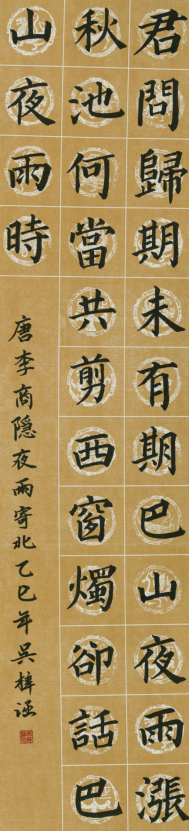 君問歸期未有期巴山夜雨漲
秋池何當共剪西窗燭卻話巴
山夜雨時
唐李商隐夜雨寄北乙巳年吴梓